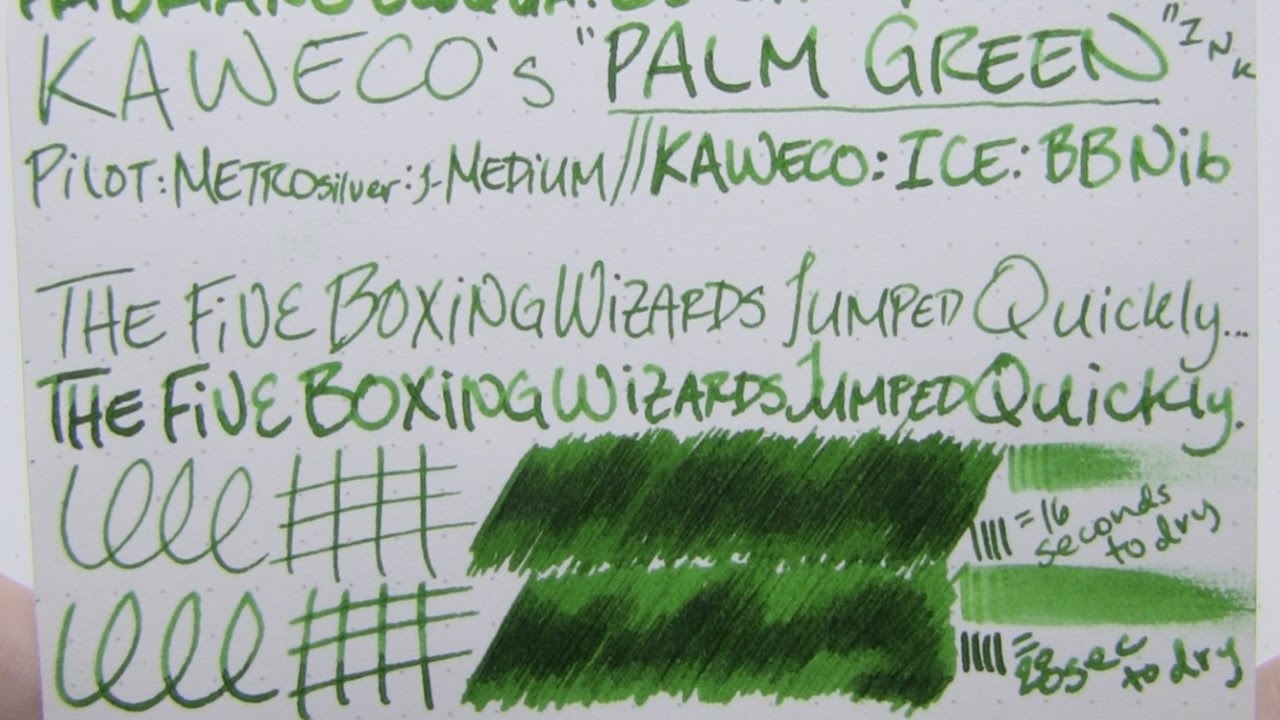 KAWECO's "PALM GREEN" INK
PiLOT: METROsilver: j-MEDiUM // KAWECO: ICE: BB Nib
THE FiVE BOXiNG WiZARDS JUMPED Quickly...
THE FiVE BOXiNG WiZARDS JUMPED Quickly.
= 16 seconds to dry
= 28 sec to dry